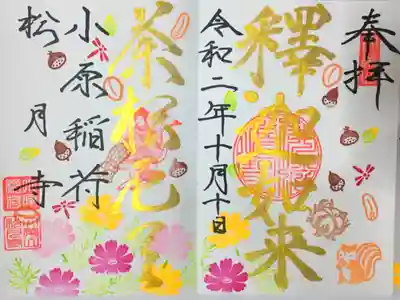 奉拝
釋迦如来
令和二年十月十日
荼枳尼天
小原稲荷
松月寺